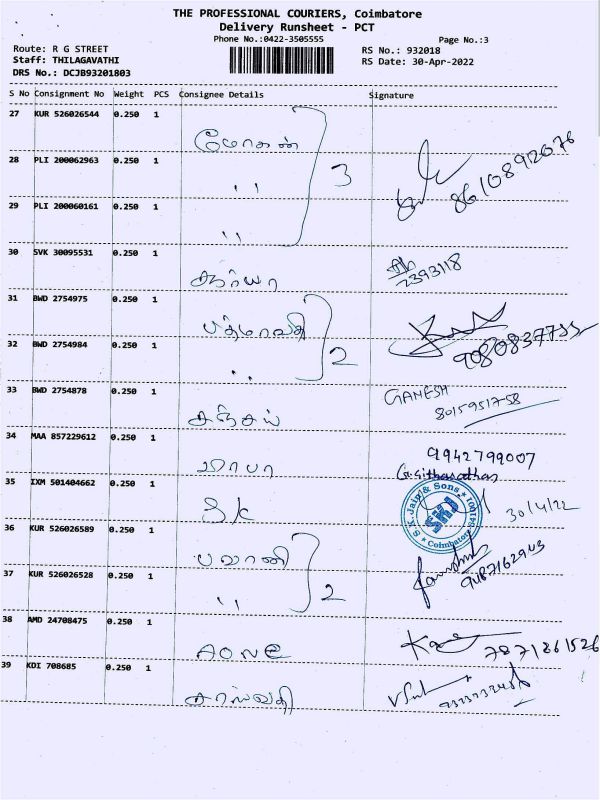 THE PROFESSIONAL COURIERS, Coimbatore
Delivery Runsheet - PCT
Phone No.:0422-3505555
Page No.:3
Route: R G STREET
RS No.: 932018
Staff: THILAGAVATHI
RS Date: 30-Apr-2022
DRS No.: DCJB93201803
S No Consignment No Weight PCS Consignee Details Signature
27 KUR 526026544 0.250 1
மோகன்
28 PLI 200062963 0.250 1
,, 3
8610892076
29 PLI 200060161 0.250 1
,,
30 SVK 30095531 0.250 1
2393118
31 BWD 2754975 0.250 1
பத்மாவதி
32 BWD 2754984 0.250 1
,, 2
33 BWD 2754878 0.250 1
GANESH
சஞ்சய்
8015951758
34 MAA 857229612 0.250 1
9942799007
35 IXM 501404662 0.250 1
SK
S.K.Jain & Sons
SKJ
Coimbatore
30/4/22
36 KUR 526026589 0.250 1
பவானி
37 KUR 526026528 0.250 1
,, 2
38 AMD 24708475 0.250 1
AONE
7871861526
39 KDI 708685 0.250 1